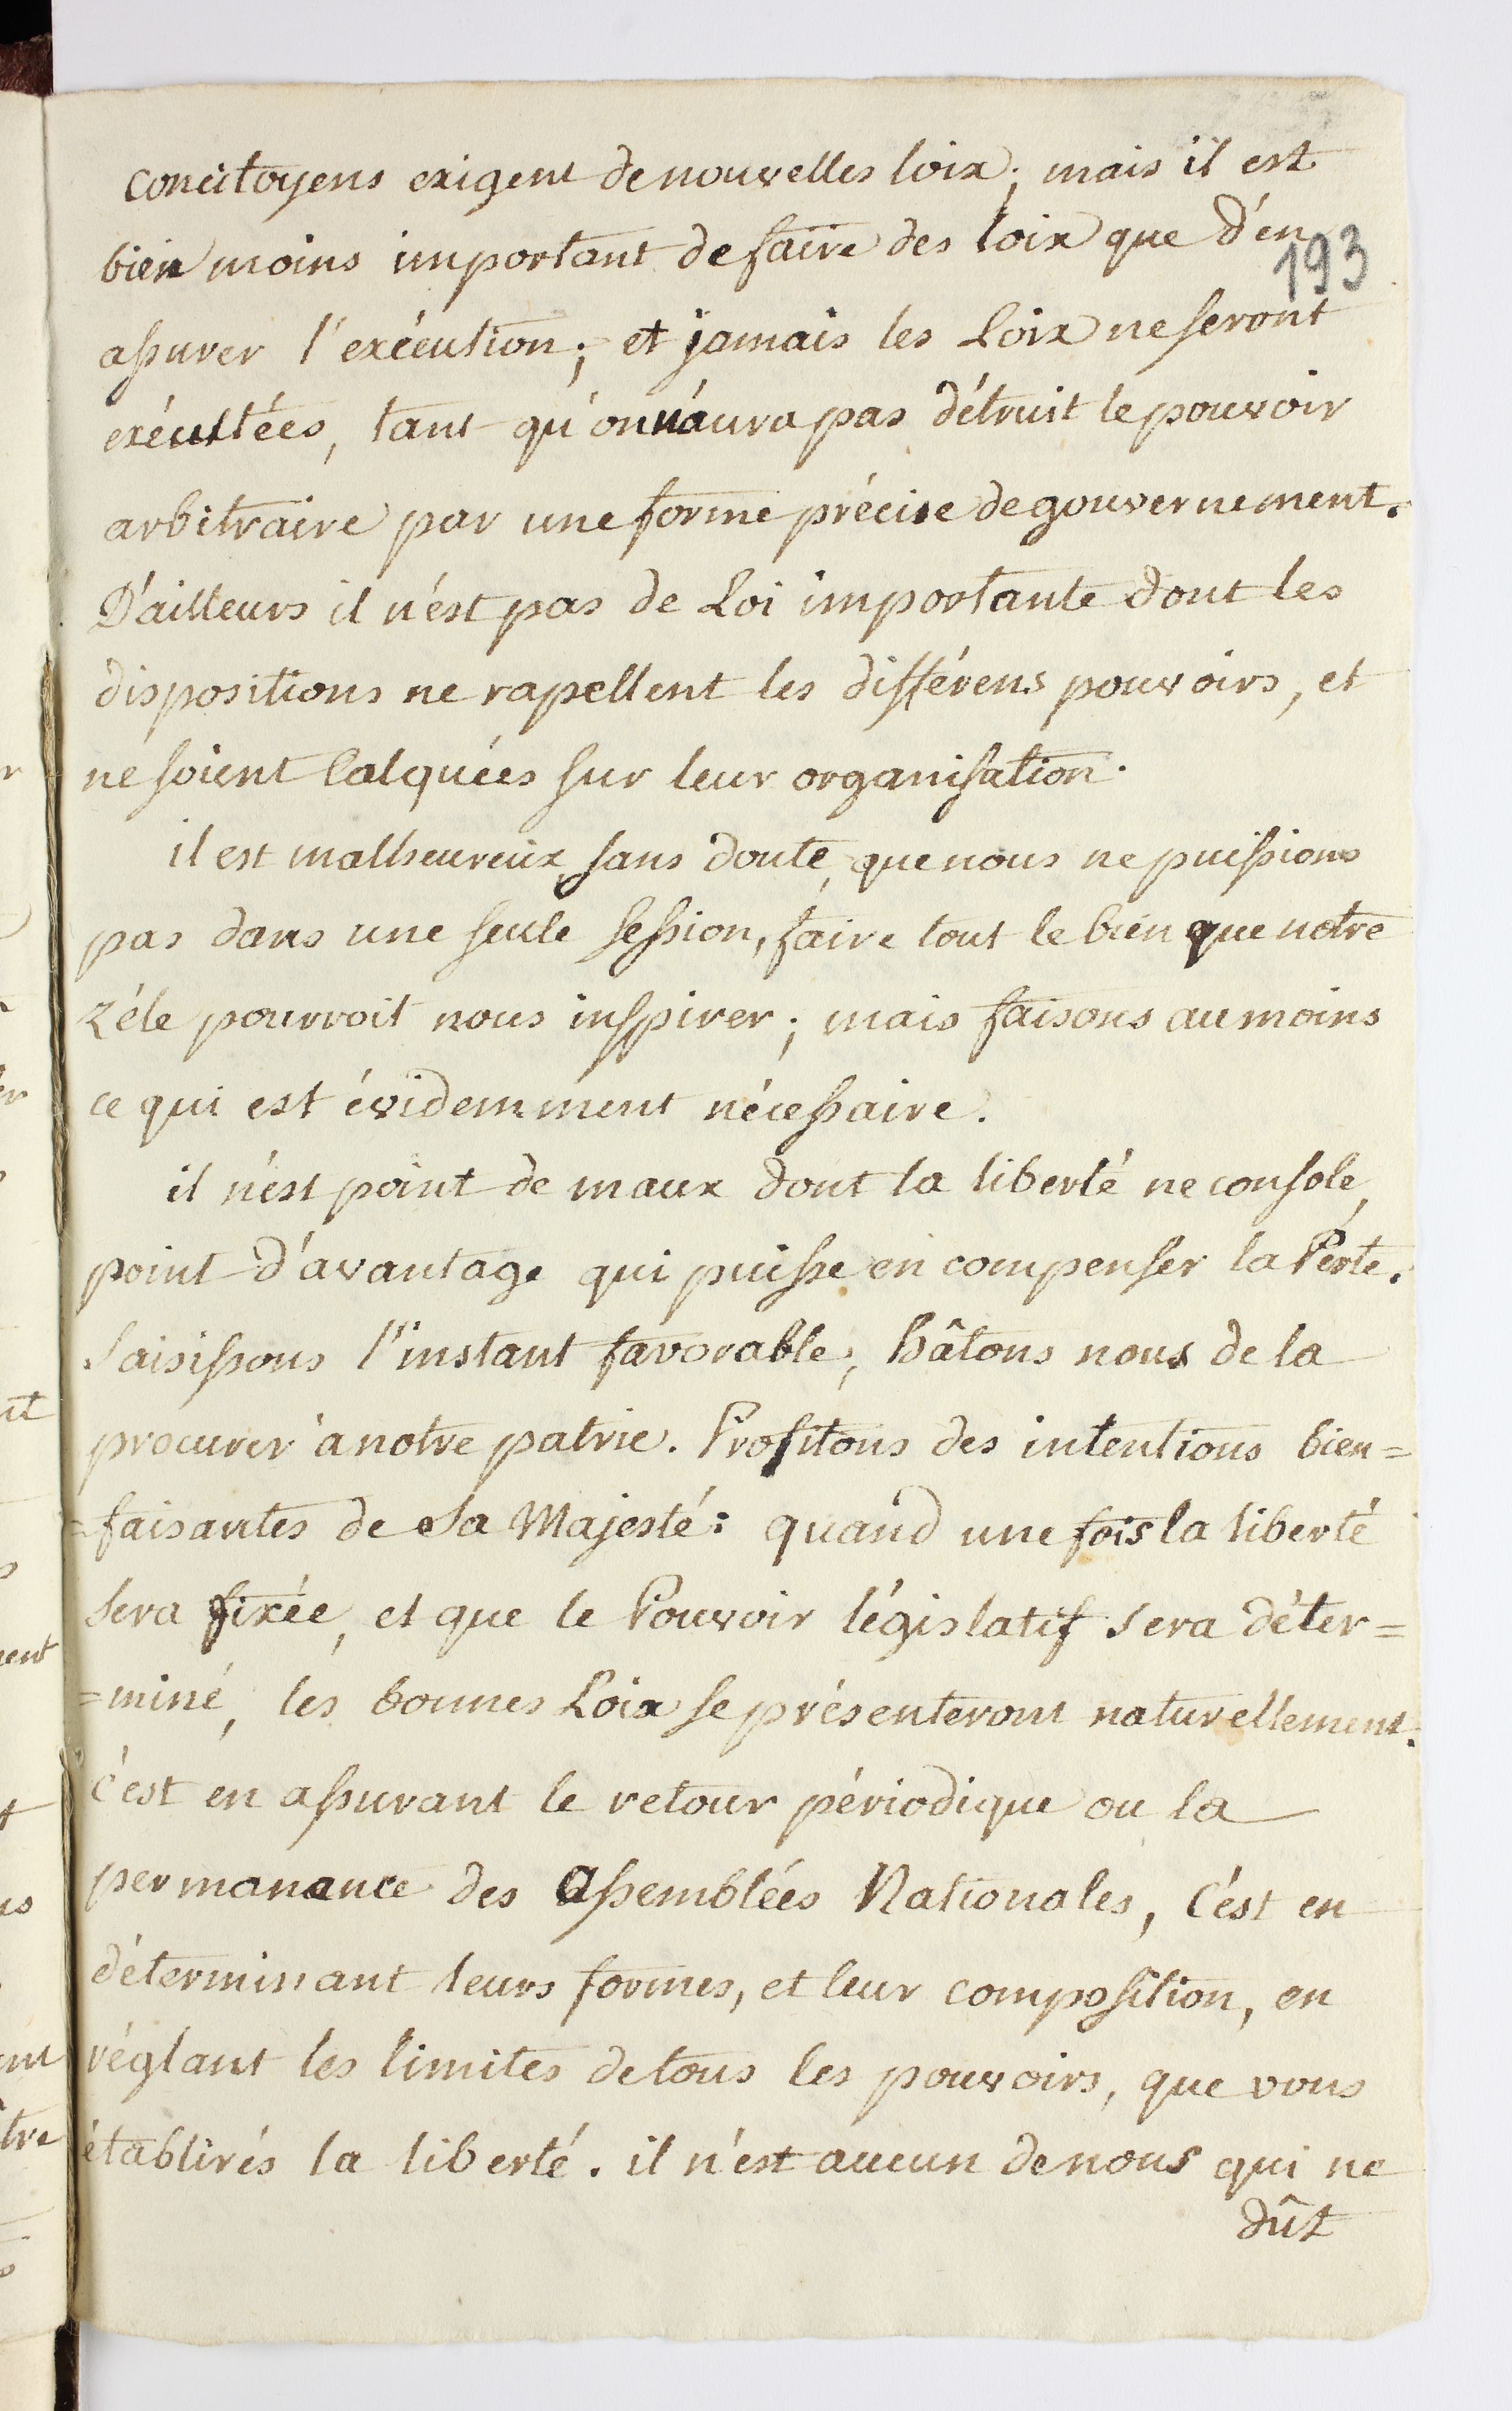 concitoyens exigent de nouvelles loix; mais il est
bien moins important de faire des loix que d'en
193
assurer l'exécution; et jamais les Loix ne seront
exécuttées, tant qu'on n'aura pas détruit le pouvoir
arbitraire par une forme précise de gouvernement.
D'ailleurs il n'est pas de Loi importante dont les
dispositions ne rapellent les différens pouvoirs, et
ne soient Calquées sur leur organisation.
il est malheureux, sans doute, que nous ne puissions
pas dans une seule session, faire tout le bien que notre
zéle pourroit nous inspirer; mais faisons au moins
ce qui est évidemment nécessaire.
il n'est point de maux dont la liberté ne console,
point d'avantage qui puisse en compenser la Perte.
Saisissons l'instant favorable, hâtons nous de la
procurer à notre patrie. Profitons des intentions bien=
=faisantes de Sa Majesté: quand une fois la liberté
sera fixée, et que le Pouvoir législatif sera déter=
=miné, les bonnes Loix se présenteront naturellement.
c'est en assurant le retour périodique ou la
permanance des assemblées Nationales, c'est en
déterminant leurs formes, et leur composition, en
réglant les limites de tous les pouvoirs, que vous
établirés la liberté. il n'est aucun de nous qui ne
dût